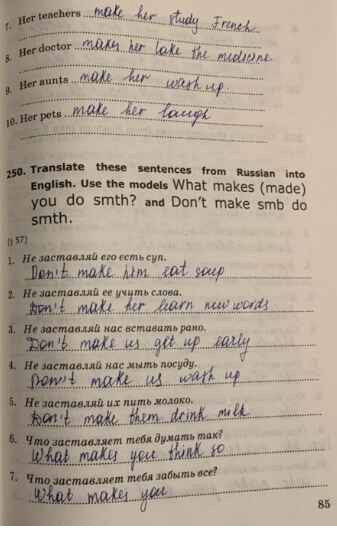 7. Her teachers make her study French
8. Her doctor makes her take the medicine
9. Her aunts make her wash up.
10. Her pets make her laugh
250. Translate these sentences from Russian into
English. Use the models What makes (made)
you do smth? and Don't make smb do
smth.
(§ 57)
1. Не заставляй его есть суп.
Don't make him eat soup
2. Не заставляй ее учить слова.
Don't make her learn new words
3. Не заставляй нас вставать рано.
Don't make us get up early
4. Не заставляй нас мыть посуду.
Don't make us wash up
5. Не заставляй их пить молоко.
Don't make them drink milk
6. Что заставляет тебя думать так?
What makes you think so
7. Что заставляет тебя забыть все?
What makes you
85